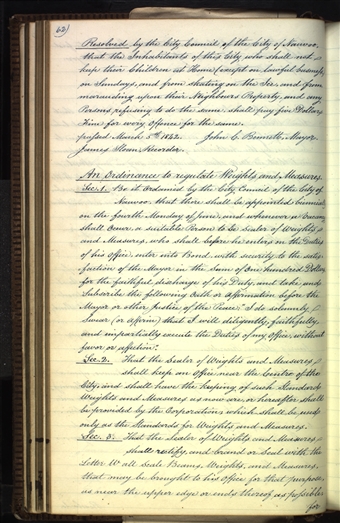 62)
Resolved by the City Council of the City of Nauvoo,
that the Inhabitants of this City who shall not
keep their Children at Home (except on lawful
on Sundays, and from skating on the Ice, and from
marauding upon their Neighbours Property, and any
Persons refusing to do the same shall pay five Dollars
Fine for every Offence for the same.
passed March 5th 1842. John C. Bennett, Mayor
James Sloan Recorder.
An Ordinance to regulate Weights and Measures.
Sec. 1. Be it Ordained by the City Council of the City of
Nauvoo, that there shall be appointed
on the fourth Monday of June, and whenever a Vacancy
shall Occur, a suitable Person to be Sealer of Weights
and Measures, who shall before he enters in the Duties
of his Office, enter into Bond with security to the satis-
faction of the Mayor in the Sum of One hundred Dollars
for the faithful discharge of his Duty, and take and
Subscribe the following Oath or affirmation before the
Mayor or other Justice of the Peace "I do solemnly
Swear (or affirm) that I will diligently, faithfully,
and impartially execute the Duties of my Office, without
favor or affection."
Sec. 2. That the Sealer of Weights and Measures
shall keep an Office near the Centre of the
City, and shall have the keeping of such Standard
Weights and Measures as now are, or hereafter shall
be provided by the Corporation, which shall be used
only as the Standards for Weights and Measures.
Sec. 3. That the Sealer of Weights and Measures
shall rectify, and brand or Seal with the
Letter W all Scale Beams, Weights, and Measures,
that may be brought to his Office for that purpose,
as near the upper edge or ends thereof as possible,
for